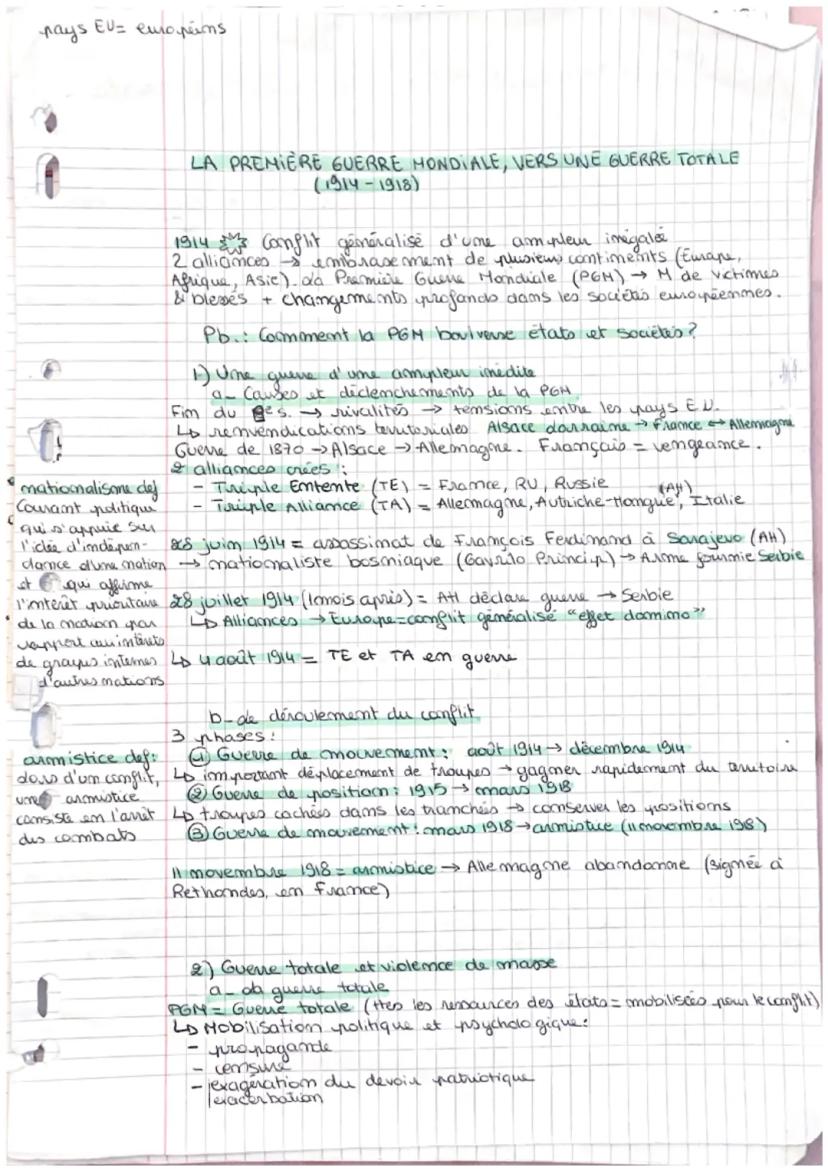 pays EU = européens
LA PREMIÈRE GUERRE MONDIALE, VERS UNE GUERRE TOTALE
(1914-1918)
1914 Conflit généralisé d'une ampleur inégalée
2 alliances → embrasement de plusieurs continents (Europe,
Afrique, Asie). La Première Guerre Mondiale (PGM) → M de victimes
& blessés + changements profonds dans les sociétés européennes.
Pb.: Comment la PGM bouverse états et sociétés?
1) Une guerre d'une ampleur inédite
a_ Causes et déclenchements de la PGM
Fin du s. → rivalités → tensions entre les pays EU.
↳ renvendications territoriales Alsace Lorraine → France ↔ Allemagne
Guerre de 1870 → Alsace → Allemagne. Français = vengeance.
2 alliances créés :
- Triple Entente (TE) = France, RU, Russie
- Triple Alliance (TA) = Allemagne, Autriche-Hongrie (AH), Italie
nationalisme def
Courant politique
qui s'appuie sur
l'idée d'indépen-
dance d'une nation
et qui affirme
l'intérêt prioritaire
de la nation par
rapport aux intérêts
de groupes internes
d'autres nations
28 juin 1914 = assassinat de François Ferdinand à Sarajevo (AH)
→ nationaliste bosniaque (Gavrilo Princip) → Arme fournie Serbie
28 juillet 1914 (1 mois après) = AH déclare guerre → Serbie
↳ Alliances → Europe = conflit généralisé "effet domino"
↳ 4 août 1914 = TE et TA en guerre
b_ Le déroulement du conflit
3 phases :
① Guerre de mouvement : août 1914 → décembre 1914
↳ important déplacement de troupes → gagner rapidement du territoire
② Guerre de position : 1915 → mars 1918
↳ troupes cachées dans les tranchées → conserver les positions
③ Guerre de mouvement : mars 1918 → armistice (11 novembre 1918)
armistice def:
Lors d'un conflit,
une armistice
consiste en l'arrêt
des combats
11 novembre 1918 = armistice → Allemagne abandonne (signée à
Rethondes, en France)
2) Guerre totale et violence de masse
a_ La guerre totale
PGM = Guerre totale (ttes les ressources des états = mobilisées pour le conflit)
↳ Mobilisation politique et psychologique :
- propagande
- censure
- exagération du devoir patriotique
exacerbation